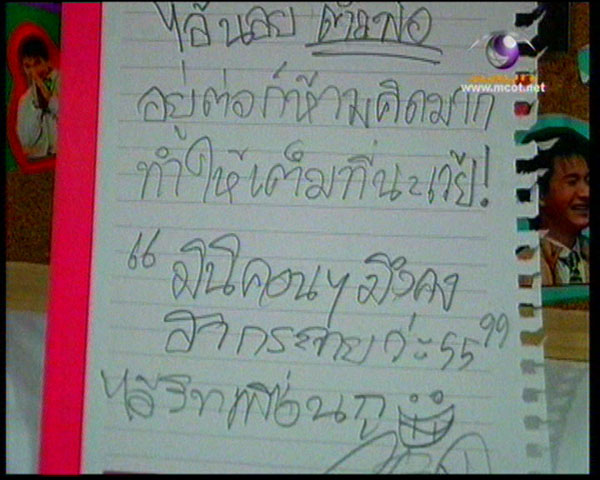 ไอ้นวย ตัวพ่อ
อยู่ต่อก็ห้ามคิดมาก
ทำให้เต็มที่นะเว้ย!
" มินิคอนฯ มึงคง
ฮากระจายว่ะ 55 "
ไอ้ริทเพื่อนกู
www.mcot.net